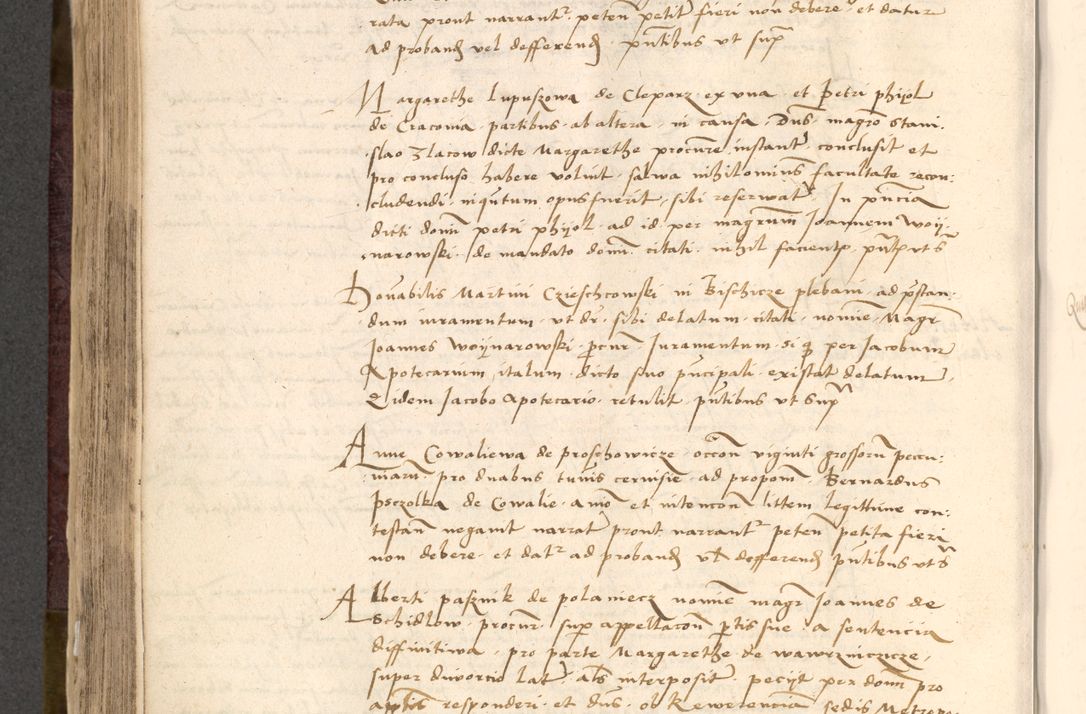 rata pront narrantr peten petit fieri non debere et datur
ad proband vel defferend pntibus vt sup
Margarethe Lupuszowa de Cleparz ex vna et Petri phizol
de Cracovia partibus ab altera in causa Dns magro Stani
slao Zlacow dicte Margarethe procure instant conclusit et
pro concluso habere voluit salva nihilominus facultate recon:
cludendi inquntum opus fuerit sibi reservat In pncia
dicti domi petri phizol ad id per magrum Joannem Woy
narowski de mandato domi citati nihil facient
Honabilis Martini Czieschcowski in Bischicze plebani ad pstan
dum iuramentum vt dr sibi delatum citati nomine Magr
Joannes Woynarowski procur Iuramentum per Jacobum
Apotecarium italum dicto suo pncipali existat delatum
Eidem Jacobo Apotecario retulit pntibus vt sup
Anne Cowaliewa de proschowicze occon viginti grossoru pecu
niaru pro duabus tunis cervisie ad propom Bernardus
pszolka de Cowalie animo et intencon littem legittime con:
testan negavit narrat pront narrantr peten petita fieri
non debere et datr ad proband vl defferend pntibus vt s
Alberti pasznik de polaniecz nomine magr Joannes de
Schidlow procur sup appellacon ptis sue a sentencia
diffinitiva pro parte Margarethe de wawrzinczicze
super divorcio lat als interposit petyt per domi pro
aptis responderi et dns ob Reverenciam sedis Metropo